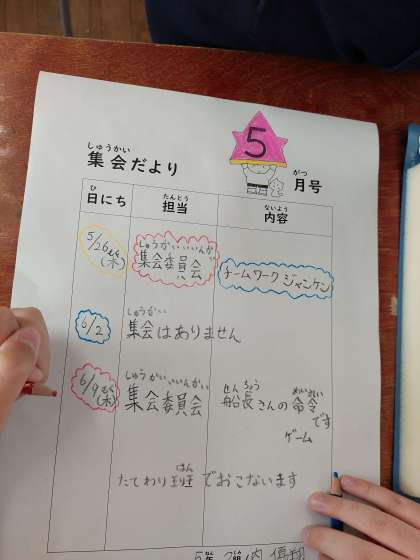 5
しゅうかい がつ
集会だより 月号
ひ たんとう ないよう
日にち 担当 内容
しゅうかいいいんかい
5/26 (木) 集会委員会 チームワークジャンケン
しゅうかい
6/2 集会はありません
しゅうかいいいんかい せんちょう めいれい
6/9 (木) 集会委員会 船長さんの命令
です
ゲーム
はん
たてわり班でおこないます